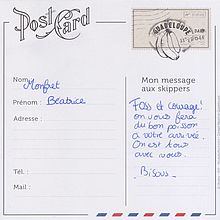 Post Card
GUADELOUPE
Nom: Monfret
Prénom : Béatrice
Adresse :
Tél. :
Mail :
Mon message
aux skippers
Foss et courage!
on vous fera
du bon poisson
à votre arrivée.
On est tous
avec vous.
Bisous